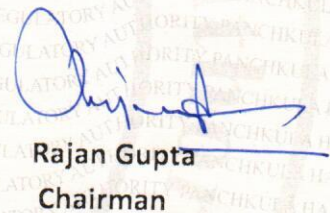 Rajan Gupta
Chairman